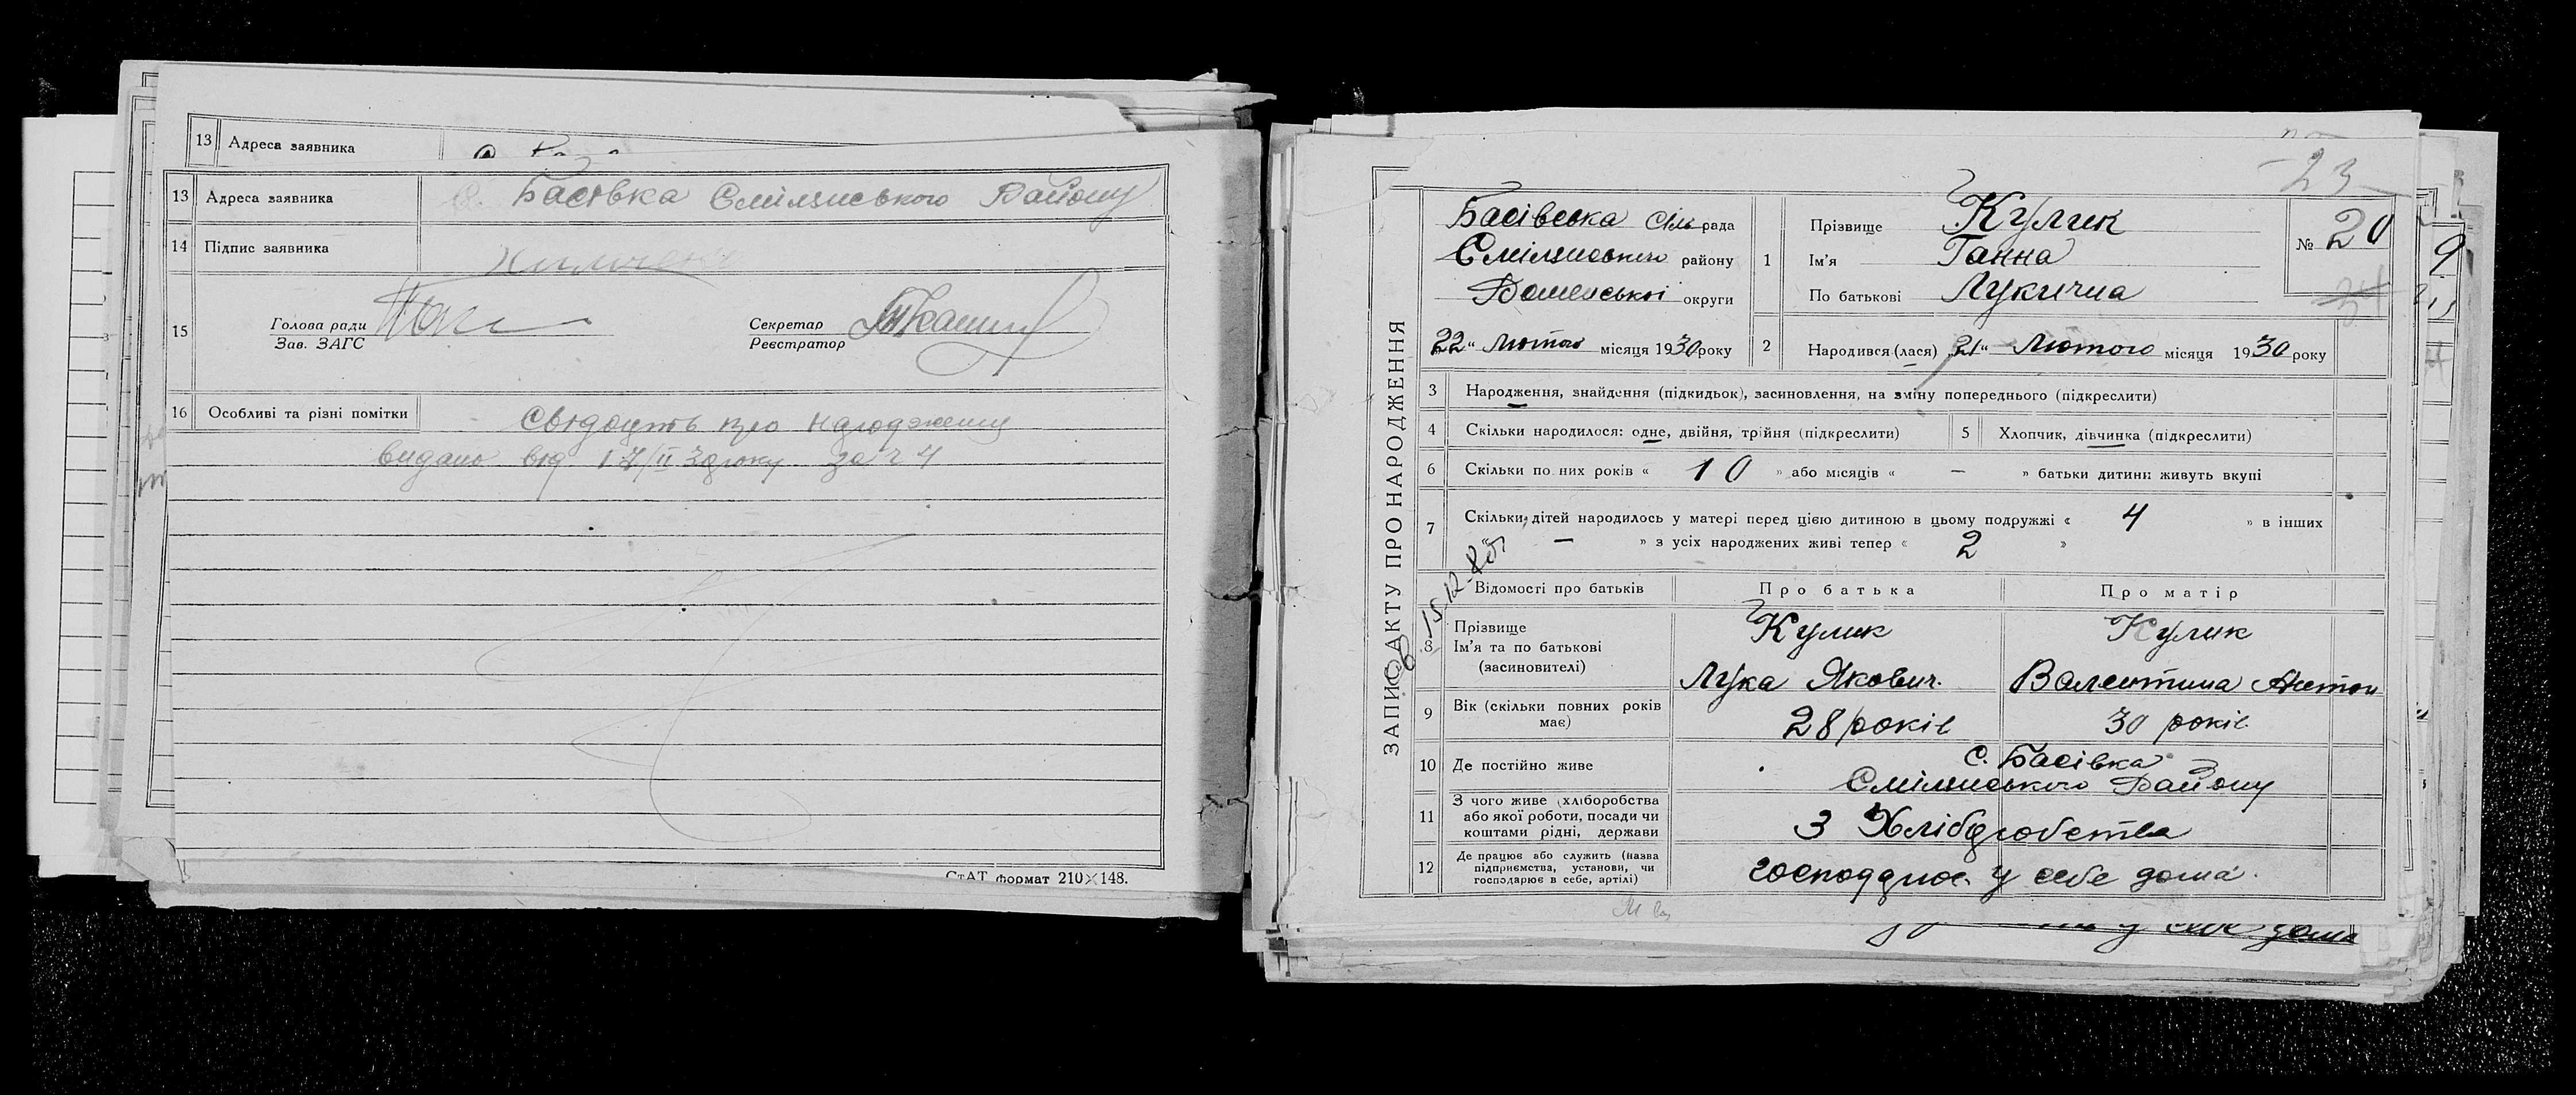 13 Адреса заявника
13 Адреса заявника с. Басівка Смілянського Району
14 Підпис заявника
15 Голова ради
Зав. ЗАГС
Секретар
Реєстратор
16 Особливі та різні помітки Свідоцть про народження
видано від 17/II 30 року за ч 4
СтАТ формат 210×148.
23
ЗАПИС АКТУ ПРО НАРОДЖЕННЯ
Басівська Сіль рада
Смілянського району
Роменської округи
„22“ Лютого місяця 1930 року
1 Прізвище Кулик
Ім'я Ганна
По батькові Лукична
№ 20
34
2 Народився (лася) „21“ Лютого місяця 1930 року
3 Народження, знайдення (підкидьок), засиновлення, на зміну попереднього (підкреслити)
4 Скільки народилося: одне, двійня, трійня (підкреслити) 5 Хлопчик, дівчинка (підкреслити)
6 Скільки повних років « 10 » або місяців « — » батьки дитини живуть вкупі
7 Скільки дітей народилось у матері перед цією дитиною в цьому подружжі « 4 » в інших
« — » з усіх народжених живі тепер « 2 »
Відомості про батьків Про батька Про матір
8 Прізвище Кулик Кулик
Ім'я та по батькові
(засиновителі) Лука Якович. Валентина Антон
9 Вік (скільки повних років має) 28 років 30 років
10 Де постійно живе с. Басівка
Смілянського Району
11 З чого живе (хліборобства
або якої роботи, посади чи
коштами рідні, держави З Хліборобства
12 Де працює або служить (назва
підприємства, установи, чи
господарює в себе, артілі) господарює у себе дома.
у себе дома